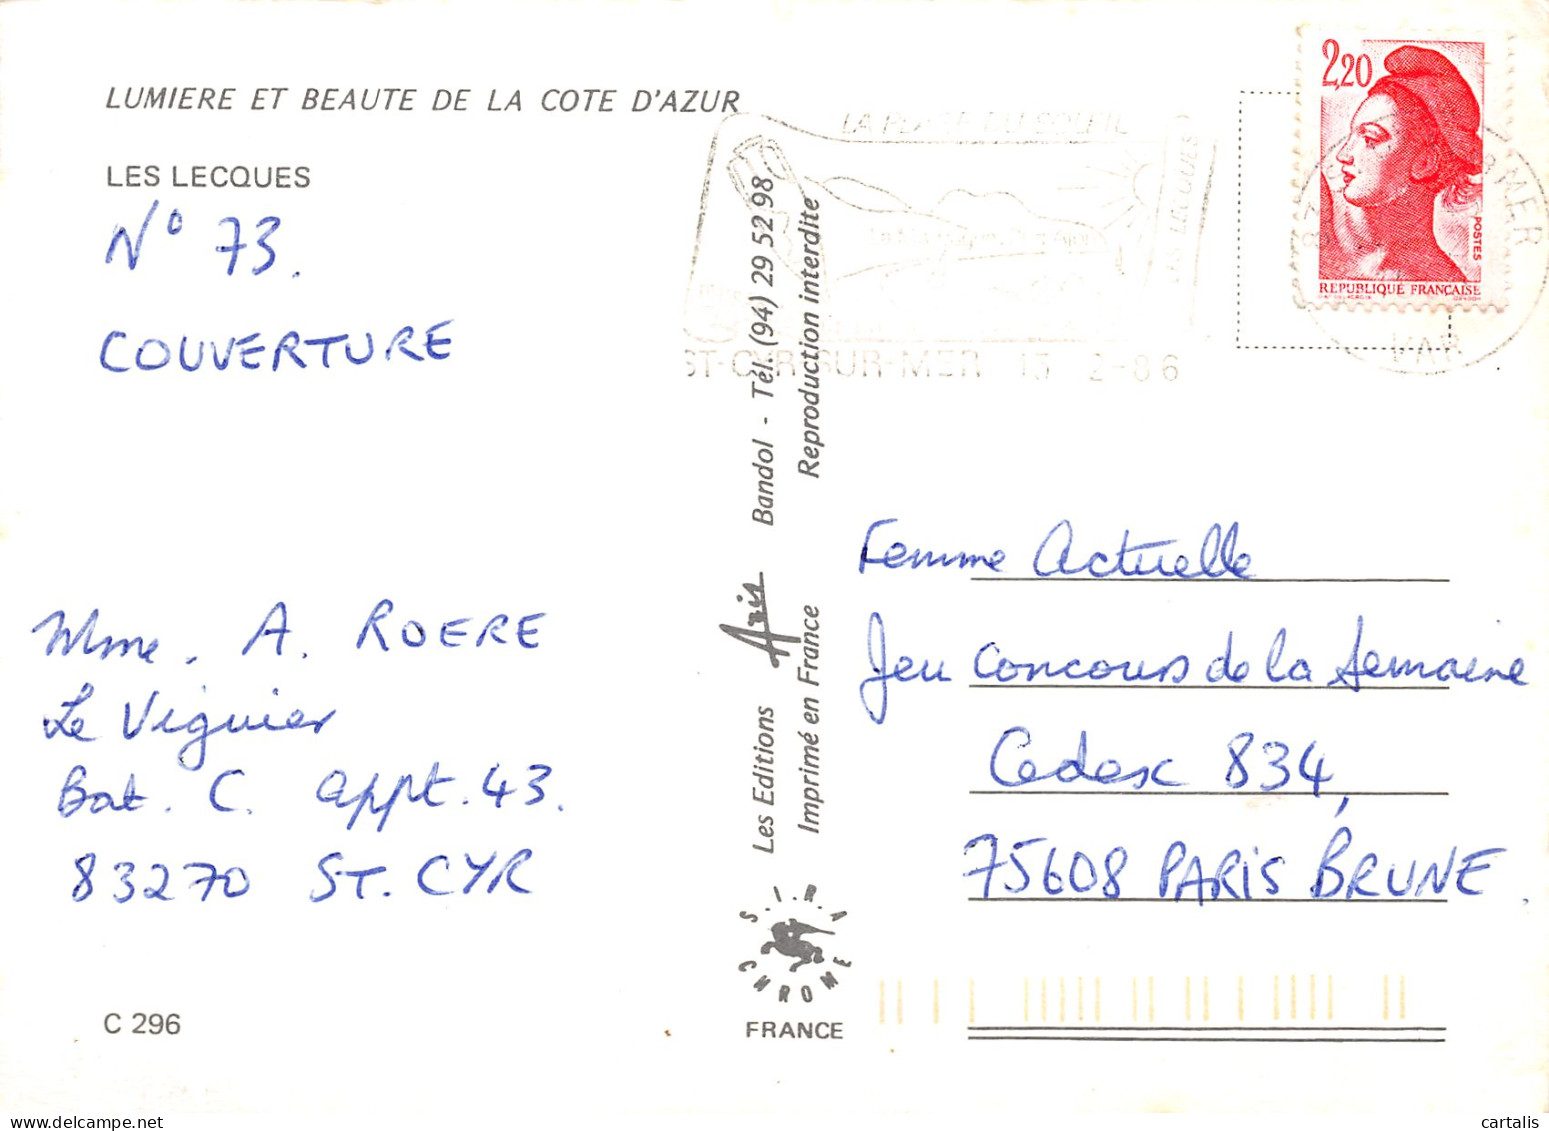 LUMIERE ET BEAUTE DE LA COTE D'AZUR
LES LECQUES
N° 73.
COUVERTURE
Mme. A. ROERE
Le Viguier
Bat. C. appt. 43.
83270 ST. CYR
C 296
Les Editions Aris Bandol - Tél. (94) 29 52 98
Imprimé en France Reproduction interdite
S.I.R.A
CHROME
FRANCE
LA PLAGE DU SOLEIL
LES LECQUES
ST-CYR-SUR-MER 13 2-86
2,20
POSTES
REPUBLIQUE FRANÇAISE
MER
VAR
Femme Actuelle
Jeu Concours de la Semaine
Cedex 834,
75608 PARIS BRUNE.
cartalis